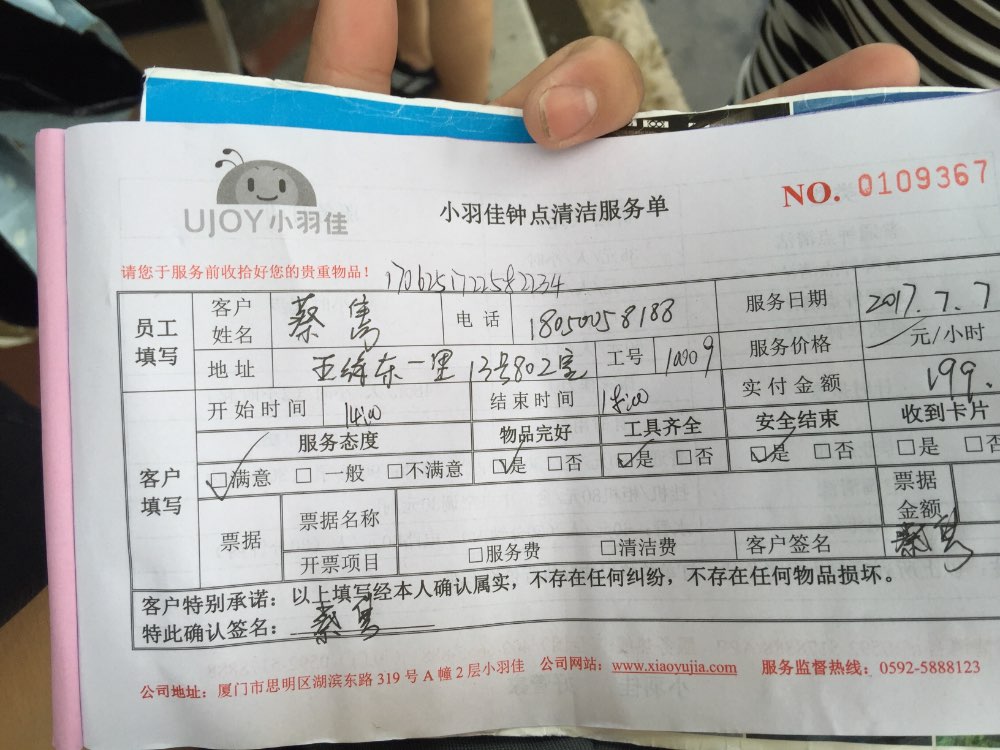 UJOY小羽佳
小羽佳钟点清洁服务单
NO. 0109367
请您于服务前收拾好您的贵重物品！
1706251722582234
员工填写 客户姓名 蔡 电话 18050058188 服务日期 2017.7.7
地址 东一里13号802室 工号 10009 服务价格 元/小时
客户填写 开始时间 14:00 结束时间 18:00 实付金额 199.
服务态度 物品完好 工具齐全 安全结束 收到卡片
☑满意 □一般 □不满意 ☑是 □否 ☑是 □否 ☑是 □否 □是 □否
票据 票据名称 票据金额
开票项目 □服务费 □清洁费 客户签名
客户特别承诺：以上填写经本人确认属实，不存在任何纠纷，不存在任何物品损坏。
特此确认签名：
公司地址：厦门市思明区湖滨东路319号A幢2层小羽佳 公司网站：www.xiaoyujia.com 服务监督热线：0592-5888123